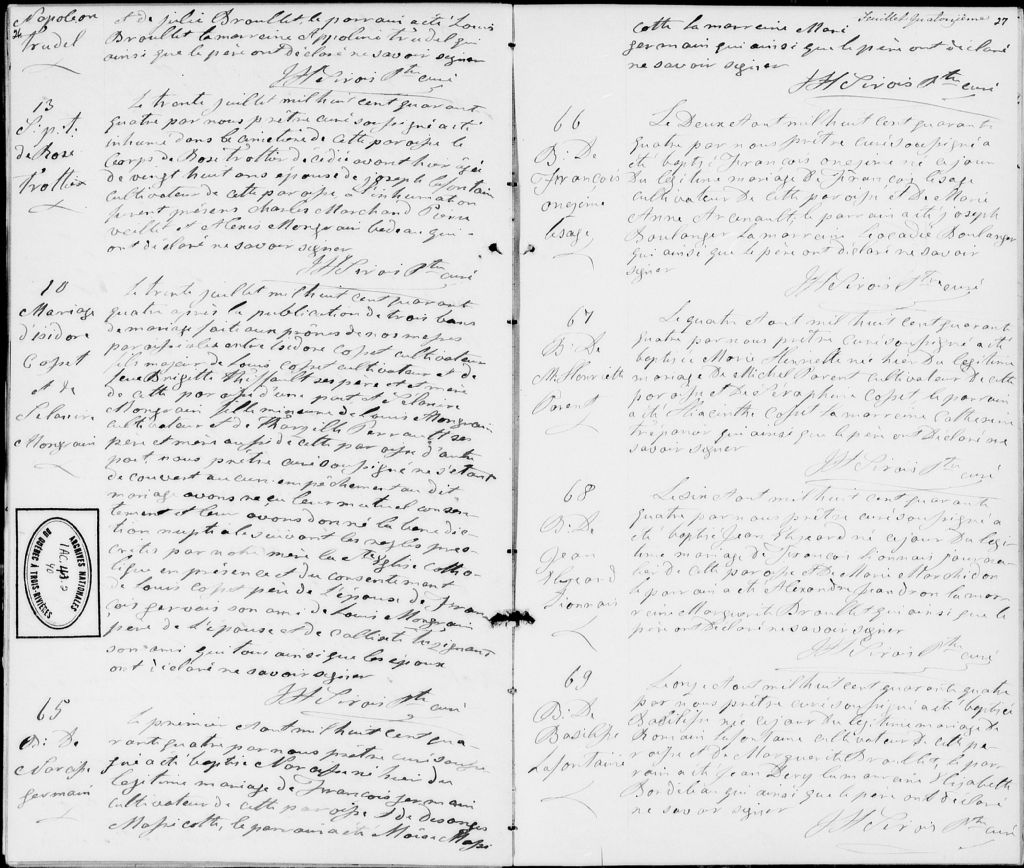 Napoleon
Trudel
et de julie Broullet le parrain a été Louis
Broullet la marreine Appoline trudel qui
ainsi que le père ont déclaré ne savoir signer
JH Sirois Ptre curé
13
S: p. t:
de Rose
trottier
Le trente juillet mil huit cent quarant
quatre par nous prêtre curé soussigné a été
inhumé dans le cimetière de cette paroisse le
Corps de Rose trottier décédée avant hier âgée
de vingt huit ans epouse de joseph lafontain
cultivateur de cette paroisse a l'inhumation
furent présens Charles Marchand Pierre
veillet et Alexis Mongrain bedeau qui
ont déclaré ne savoir signer
JH Sirois Ptre curé
10
Mariage
d'isidore
Cosset
et de
Mongrain
Le trente juillet mil huit cent quarant
quatre après la publication de trois bans
de mariage faite aux prônes de nos messes
paroissiales entre isidore Cosset cultivateur
fils majeur de Louis Cosset cultivateur et de
feue Brigitte thiffault ses père et mère
de cette paroisse d'une part et
Mongrain fille mineure de Louis Mongrain
cultivateur et de Perrault ses
pere et mère aussi de cette paroisse d'autre
part, nous prêtre curé soussigné ne s'étant
découvert aucun empêchement au dit
mariage avons reçu leur mutuel consen-
tement et leur avons donné la bénédic-
tion nuptiale suivant les regles pres-
crites par notre mère la Ste Eglise catho-
lique en présence et du consentement
de Louis Cosset père de l'épouse de fran-
çois gervais son ami de Louis Mongrain
père de l'épouse et de
son ami qui tous ainsi que les epoux
ont déclaré ne savoir signer
JH Sirois Ptre curé
65
B: De
Narcisse
germain
Le premier Aout mil huit cent qua-
rante quatre par nous prêtre curé sous-
signé a été baptisé Narcisse né hier du
légitime mariage de François germain
cultivateur de cette paroisse et de desanges
Massicotte, le parrain a été Moïse Massi
Feuillet quatorzième 27
cotte la marreine Marie
germain qui ainsi que le père ont déclaré
ne savoir signer
JH Sirois Ptre curé
66
B: De
François
onezime
lesage
Le Deux Aout mil huit cent quarante
quatre par nous prêtre curé soussigné a
été baptisé François onezime né ce jour
Du legitime mariage de François lesage
cultivateur De cette paroisse et De Marie
Anne Arcenault, le parrain a été joseph
Boulanger La marreine Leocadie Boulanger
qui ainsi que le père ont déclaré ne savoir
signer
JH Sirois Ptre curé
67
B: De
M: Henriette
Parent
Le quatre Aout mil huit cent quarant
quatre par nous prêtre curé soussigné a été
baptisée Marie Henriette née hier Du legitime
mariage De Michel Parent cultivateur de cette
paroisse et De Séraphine Cosset le parrain
a été Hiacinthe Cosset la marreine Catherine
trépanier qui ainsi que le père ont Déclaré ne
savoir signer
JH Sirois Ptre curé
68
B: De
Jean
Lionnais
Le six Aout mil huit cent quarante
quatre par nous prêtre curé soussigné a
été baptisé Jean né ce jour Du légi-
time mariage De François lionnais journa-
lier de cette paroisse et De Marie
le parrain a été Alexandre la mar-
reine Marguerite Broullet qui ainsi que le
père ont Déclaré ne savoir signer
JH Sirois Ptre curé
69
B: De
Basilisse
Lafontaine
Le onze Aout mil huit cent quarante quatre
par nous prêtre curé soussigné a été baptisée
Basilisse née ce jour Du legitime mariage De
Romain lafontaine cultivateur De cette pa-
roisse et De Marguerite Broullet, le par-
rain a été Jean Dery la marreine Elizabeth
Bordeleau qui ainsi que le père ont déclaré
ne savoir signer
JH Sirois Ptre curé
ARCHIVES NATIONALES
DU QUÉBEC À TROIS-RIVIÈRES